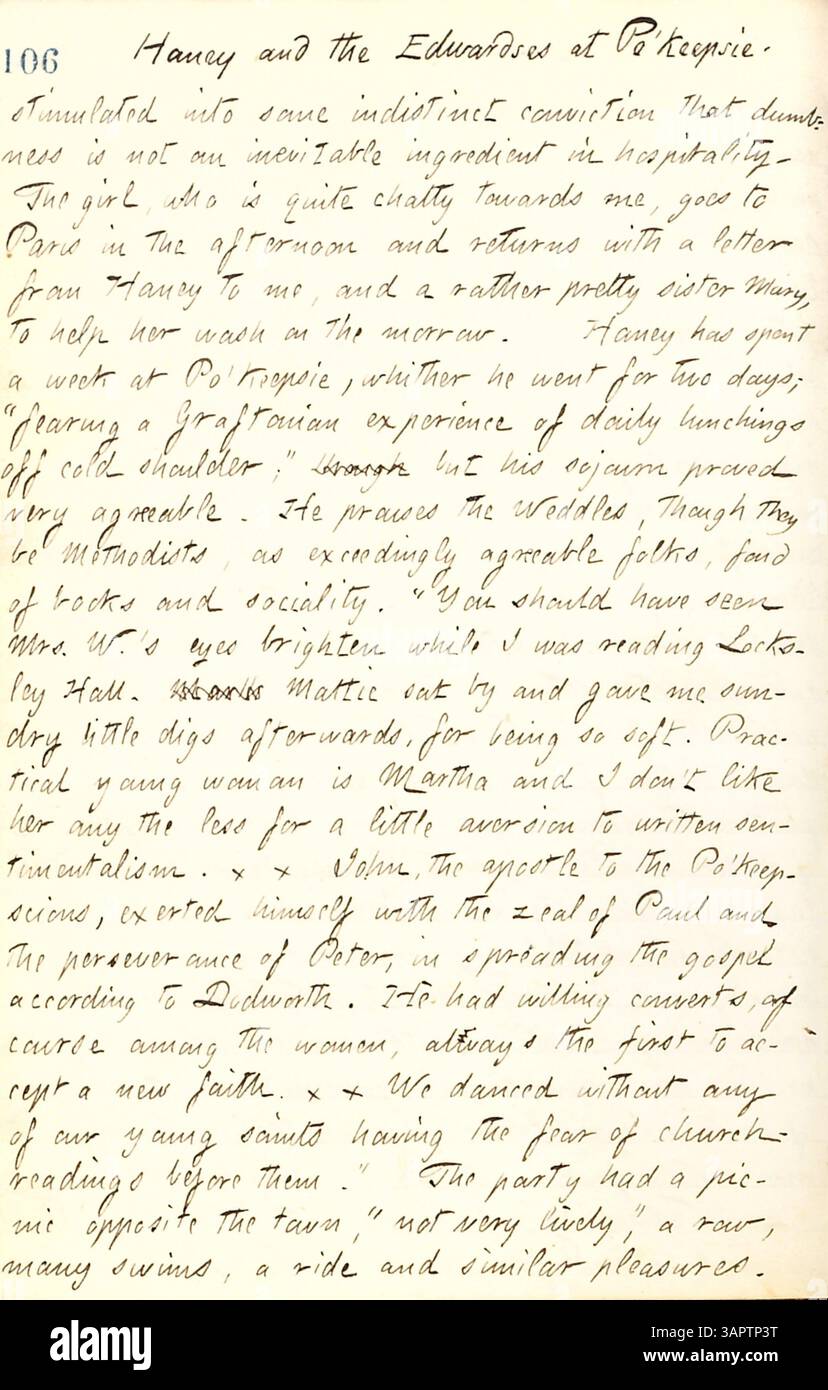 106 Haney and the Edwardses at Po'Keepsie.
stimulated into some indistinct conviction that dumb=
ness is not an inevitable ingredient in hospitality-
The girl, who is quite chatty towards me, goes to
Paris in the afternoon and returns with a letter
from Haney to me, and a rather pretty sister Mary,
to help her wash on the morrow. Haney has spent
a week at Po'Keepsie, whither he went for two days;
"fearing a Graftonian experience of daily lunchings
off cold shoulder;" though but his sojourn proved
very agreeable. He praises the Weddles, though they
be Methodists, as exceedingly agreeable folks, fond
of books and sociality. "You should have seen
Mrs. W.'s eyes brighten while I was reading Locks-
ley Hall. Mattie sat by and gave me sun-
dry little digs afterwards, for being so soft. Prac-
tical young woman is Martha and I don't like
her any the less for a little aversion to written sen-
timentalism. x x John, the apostle to the Po'Keep-
scions, exerted himself with the zeal of Paul and
the perseverance of Peter, in spreading the gospel
according to Dodworth. He had willing converts, of
course among the women, always the first to ac-
cept a new faith. x x We danced without any
of our young saints having the fear of church-
readings before them." The party had a pic-
nic opposite the town, "not very lively," a row,
many swims, a ride and similar pleasures.
alamy
Image ID: 3APTP3T
www.alamy.com